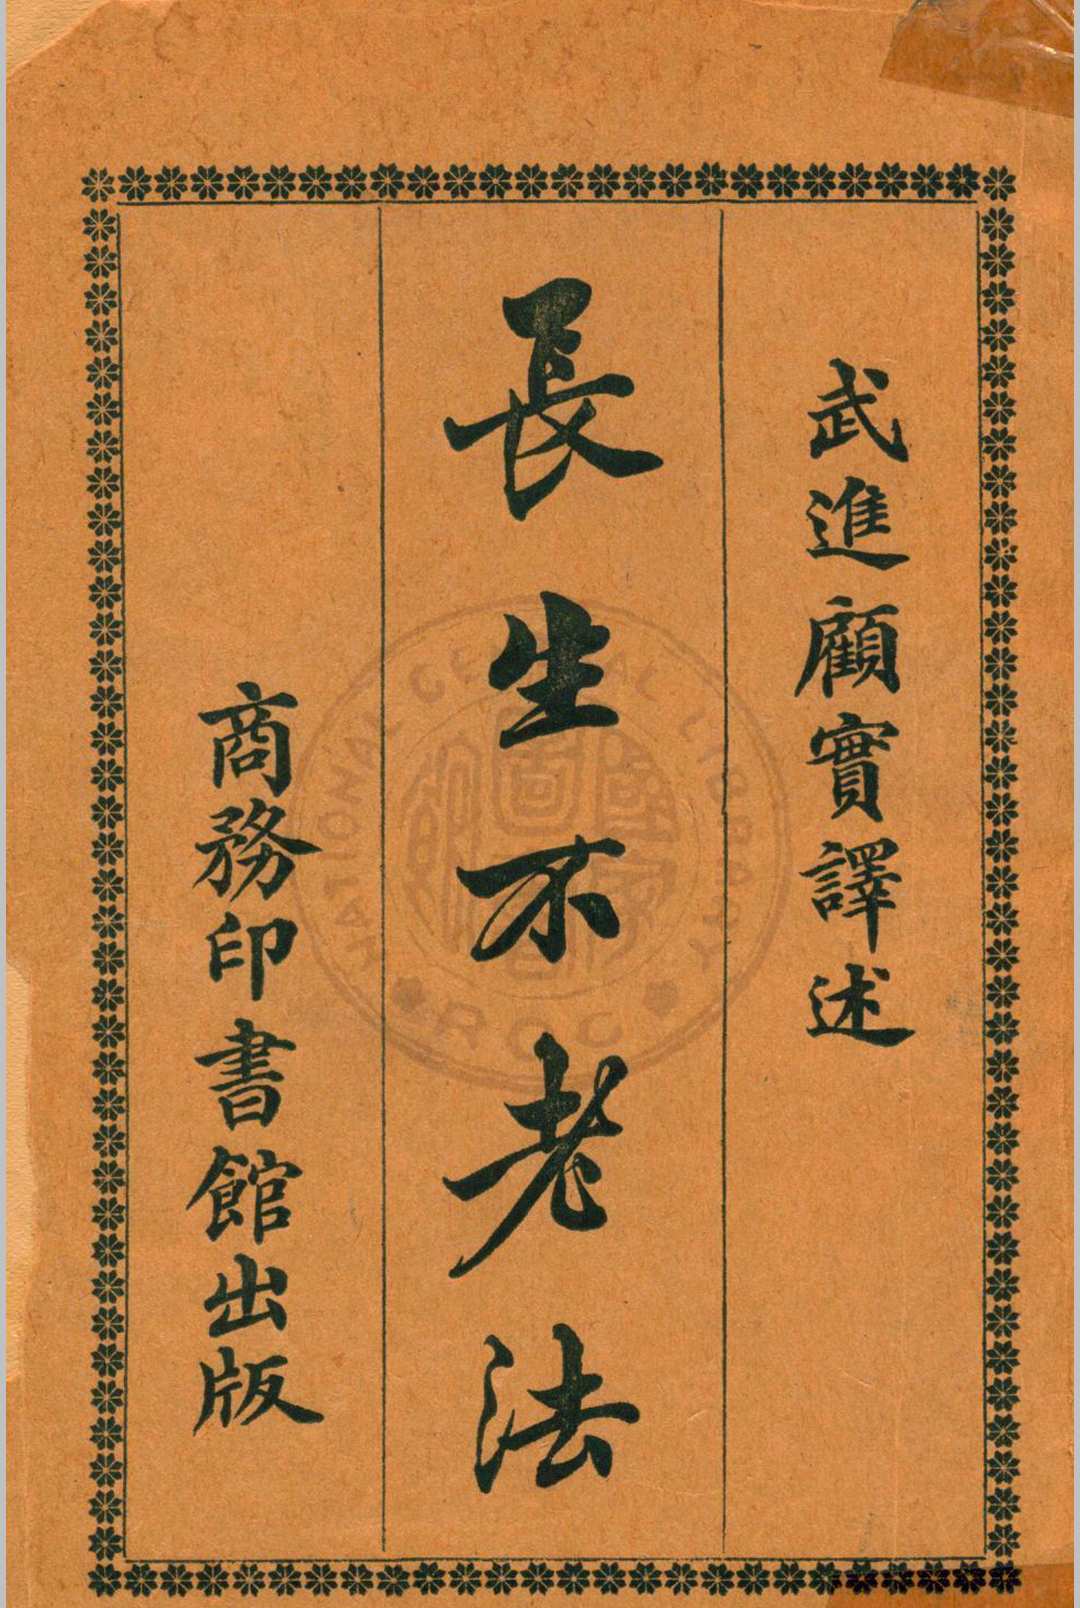 武進顧實譯述
長生不老法
商務印書館出版
NATIONAL CENTRAL LIBRARY
ROC